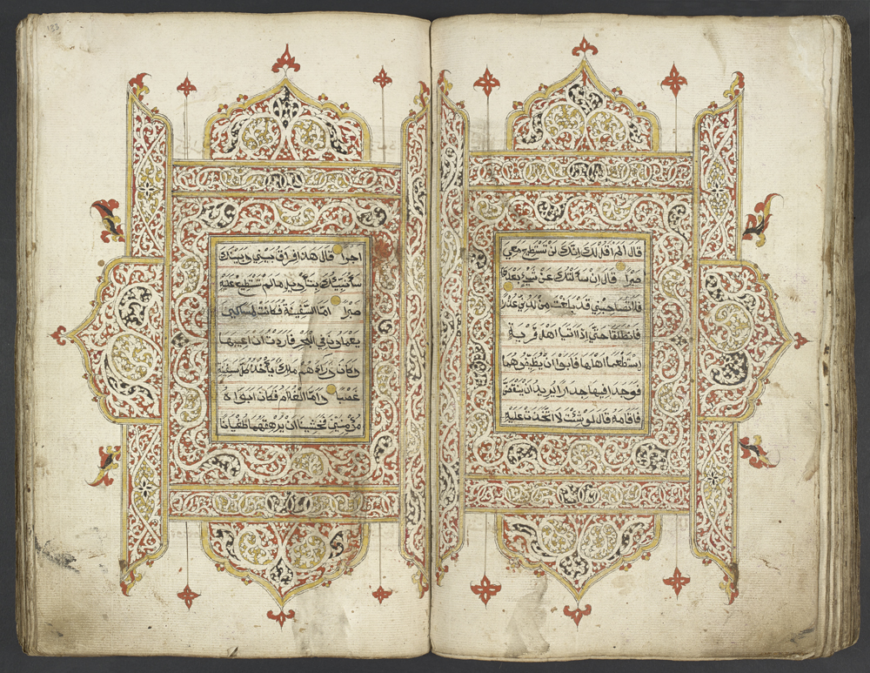 قال الم اقل لك انك لن تستطيع معي
صبرا قال ان سالتك عن شيء بعدها
فلا تصاحبني قد بلغت من لدني عذرا
فانطلقا حتى اذا اتيا اهل قرية
استطعما اهلها فابوا ان يضيفوهما
فوجدا فيها جدارا يريد ان ينقض
فاقامه قال لو شئت لاتخذت عليه
اجرا قال هذا فراق بيني وبينك
سانبئك بتاويل ما لم تستطع عليه
صبرا اما السفينة فكانت لمساكين
يعملون في البحر فاردت ان اعيبها
وكان وراءهم ملك ياخذ كل سفينة
غصبا واما الغلام فكان ابواه
مؤمنين فخشينا ان يرهقهما طغيانا